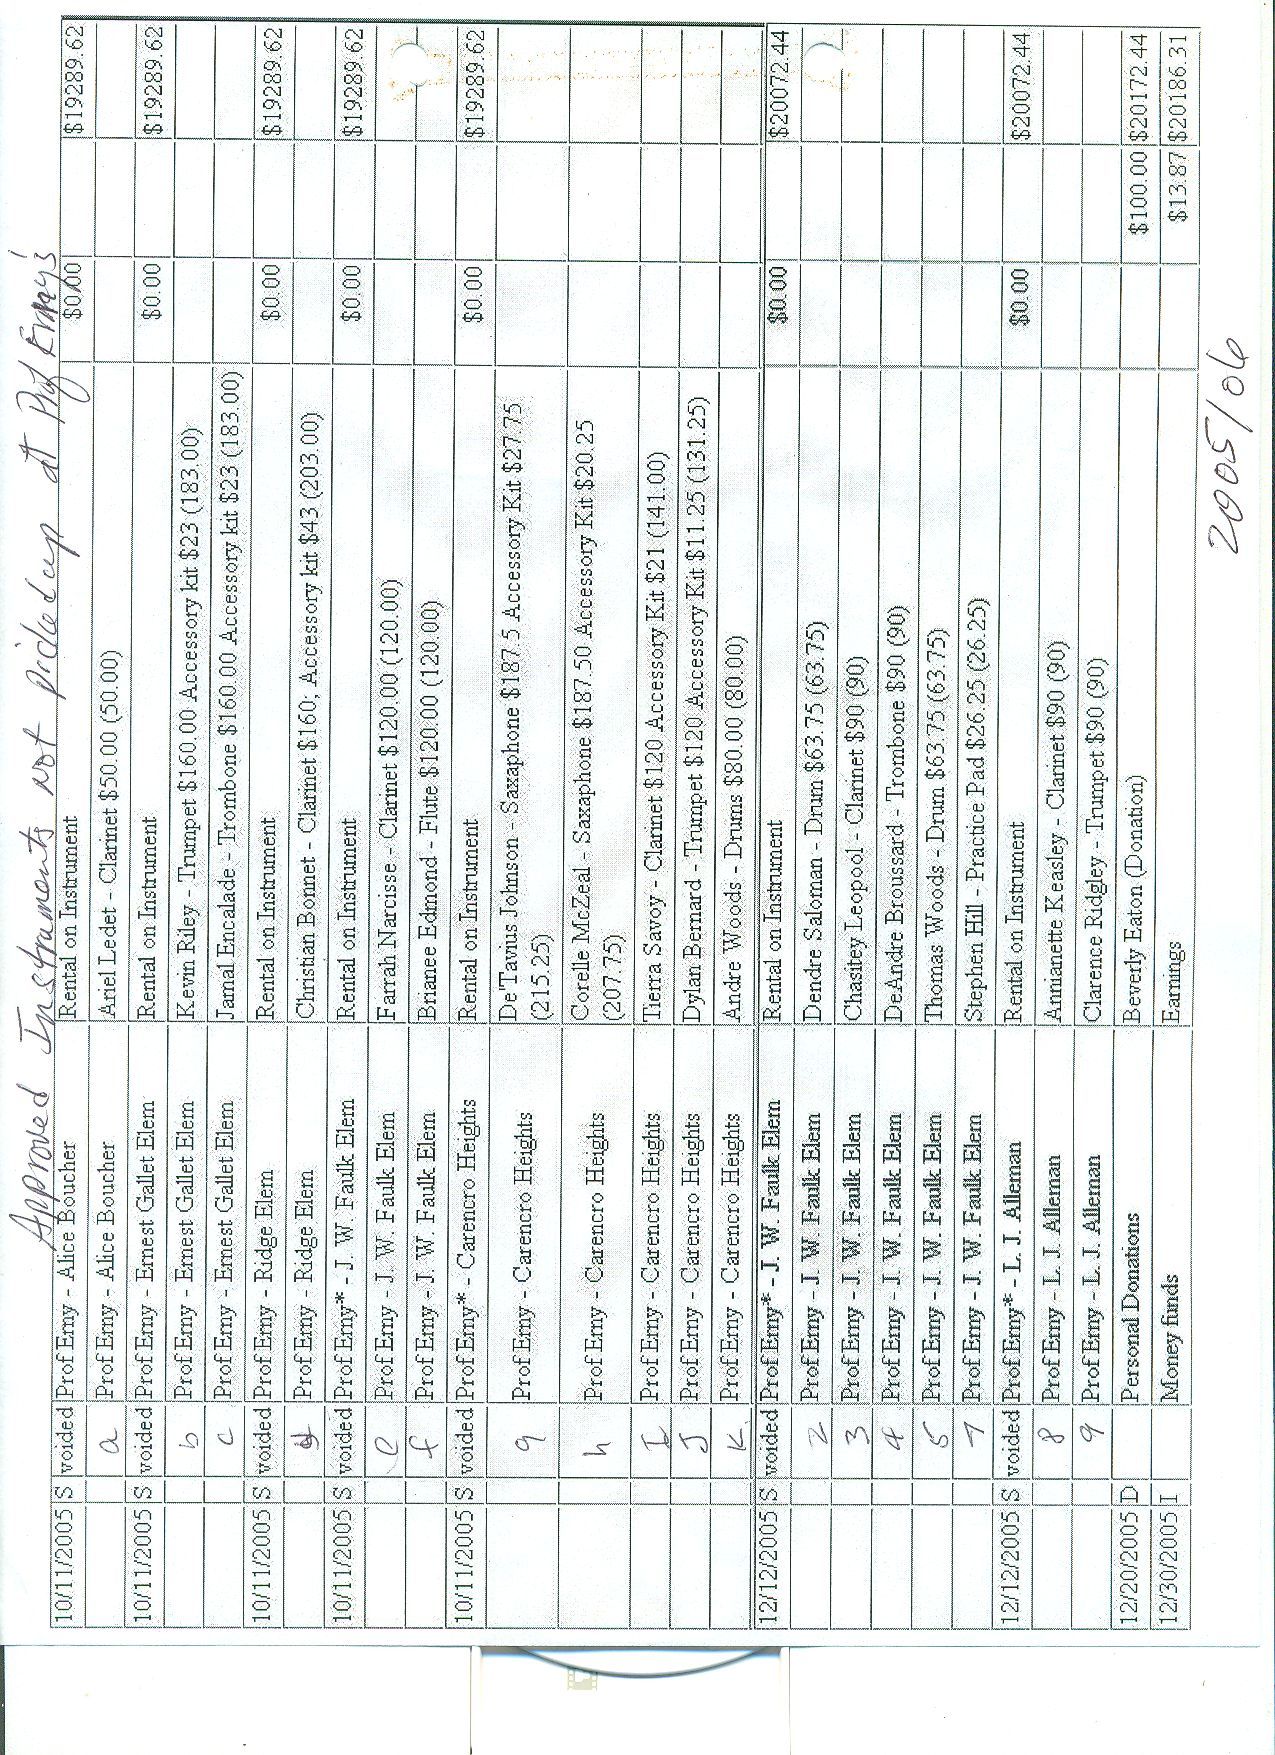 Approved Instruments not picked up at Prof Erny's
10/11/2005 S voided Prof Erny - Alice Boucher Rental on Instrument $0.00 $19289.62
a Prof Erny - Alice Boucher Ariel Ledet - Clarinet $50.00 (50.00)
10/11/2005 S voided Prof Erny - Ernest Gallet Elem Rental on Instrument $0.00 $19289.62
b Prof Erny - Ernest Gallet Elem Kevin Riley - Trumpet $160.00 Accessory kit $23 (183.00)
c Prof Erny - Ernest Gallet Elem Jamal Encalade - Trombone $160.00 Accessory kit $23 (183.00)
10/11/2005 S voided Prof Erny - Ridge Elem Rental on Instrument $0.00 $19289.62
d Prof Erny - Ridge Elem Christian Bonnet - Clarinet $160; Accessory kit $43 (203.00)
10/11/2005 S voided Prof Erny* - J. W. Faulk Elem Rental on Instrument $0.00 $19289.62
e Prof Erny - J. W. Faulk Elem Farrah Narcisse - Clarinet $120.00 (120.00)
f Prof Erny - J. W. Faulk Elem Brianee Edmond - Flute $120.00 (120.00)
10/11/2005 S voided Prof Erny* - Carencro Heights Rental on Instrument $0.00 $19289.62
g Prof Erny - Carencro Heights De'Tavius Johnson - Saxaphone $187.5 Accessory Kit $27.75
(215.25)
h Prof Erny - Carencro Heights Corelle McZeal - Saxaphone $187.50 Accessory Kit $20.25
(207.75)
I Prof Erny - Carencro Heights Tierra Savoy - Clarinet $120 Accessory Kit $21 (141.00)
J Prof Erny - Carencro Heights Dylan Bernard - Trumpet $120 Accessory Kit $11.25 (131.25)
K Prof Erny - Carencro Heights Andre Woods - Drums $80.00 (80.00)
12/12/2005 S voided Prof Erny* - J. W. Faulk Elem Rental on Instrument $0.00 $20072.44
2 Prof Erny - J. W. Faulk Elem Dendre Saloman - Drum $63.75 (63.75)
3 Prof Erny - J. W. Faulk Elem Chasitey Leopool - Clarinet $90 (90)
4 Prof Erny - J. W. Faulk Elem DeAndre Broussard - Trombone $90 (90)
5 Prof Erny - J. W. Faulk Elem Thomas Woods - Drum $63.75 (63.75)
7 Prof Erny - J. W. Faulk Elem Stephen Hill - Practice Pad $26.25 (26.25)
12/12/2005 S voided Prof Erny* - L. J. Alleman Rental on Instrument $0.00 $20072.44
8 Prof Erny - L. J. Alleman Annianette Keasley - Clarinet $90 (90)
9 Prof Erny - L. J. Alleman Clarence Ridgley - Trumpet $90 (90)
12/20/2005 D Personal Donations Beverly Eaton (Donation) $100.00 $20172.44
12/30/2005 I Money funds Earnings $13.87 $20186.31
2005/06